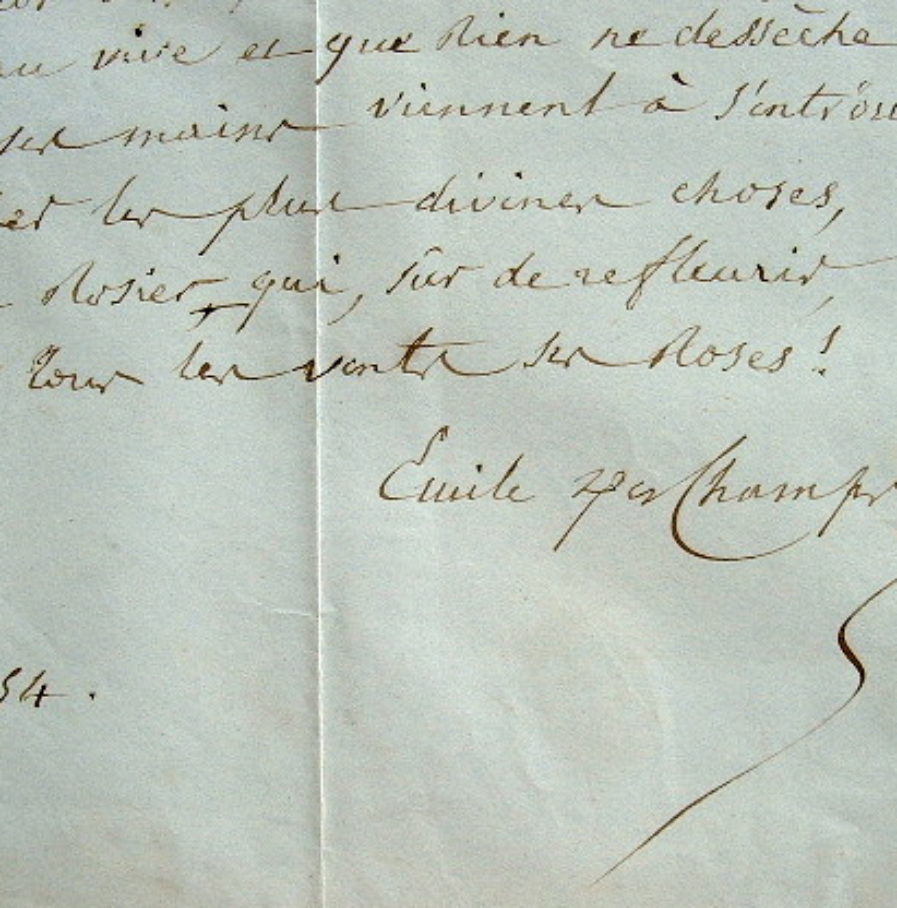 au vive et que Rien ne dessèche
ses mains viennent à s'entr'ou
les plus divines choses,
Rosier, qui, sûr de refleurir,
Tous les vents ses Roses!
Emile DesChamps
54.